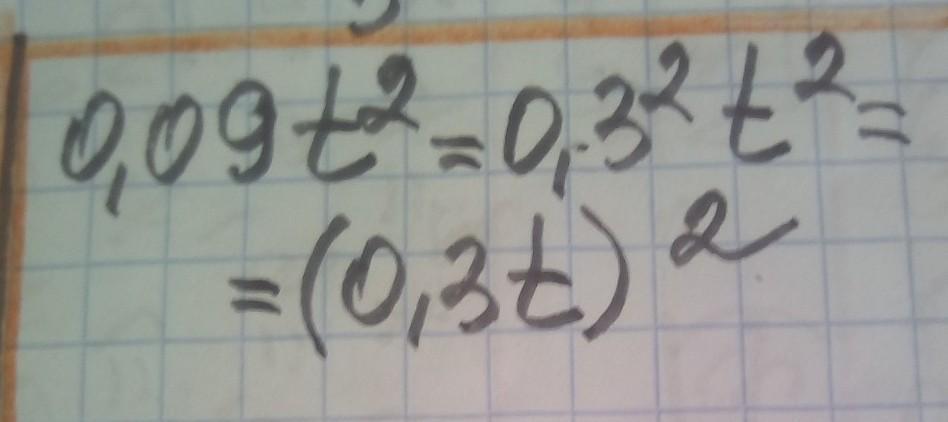 0,09t² = 0,3² t² =
= (0,3t)²